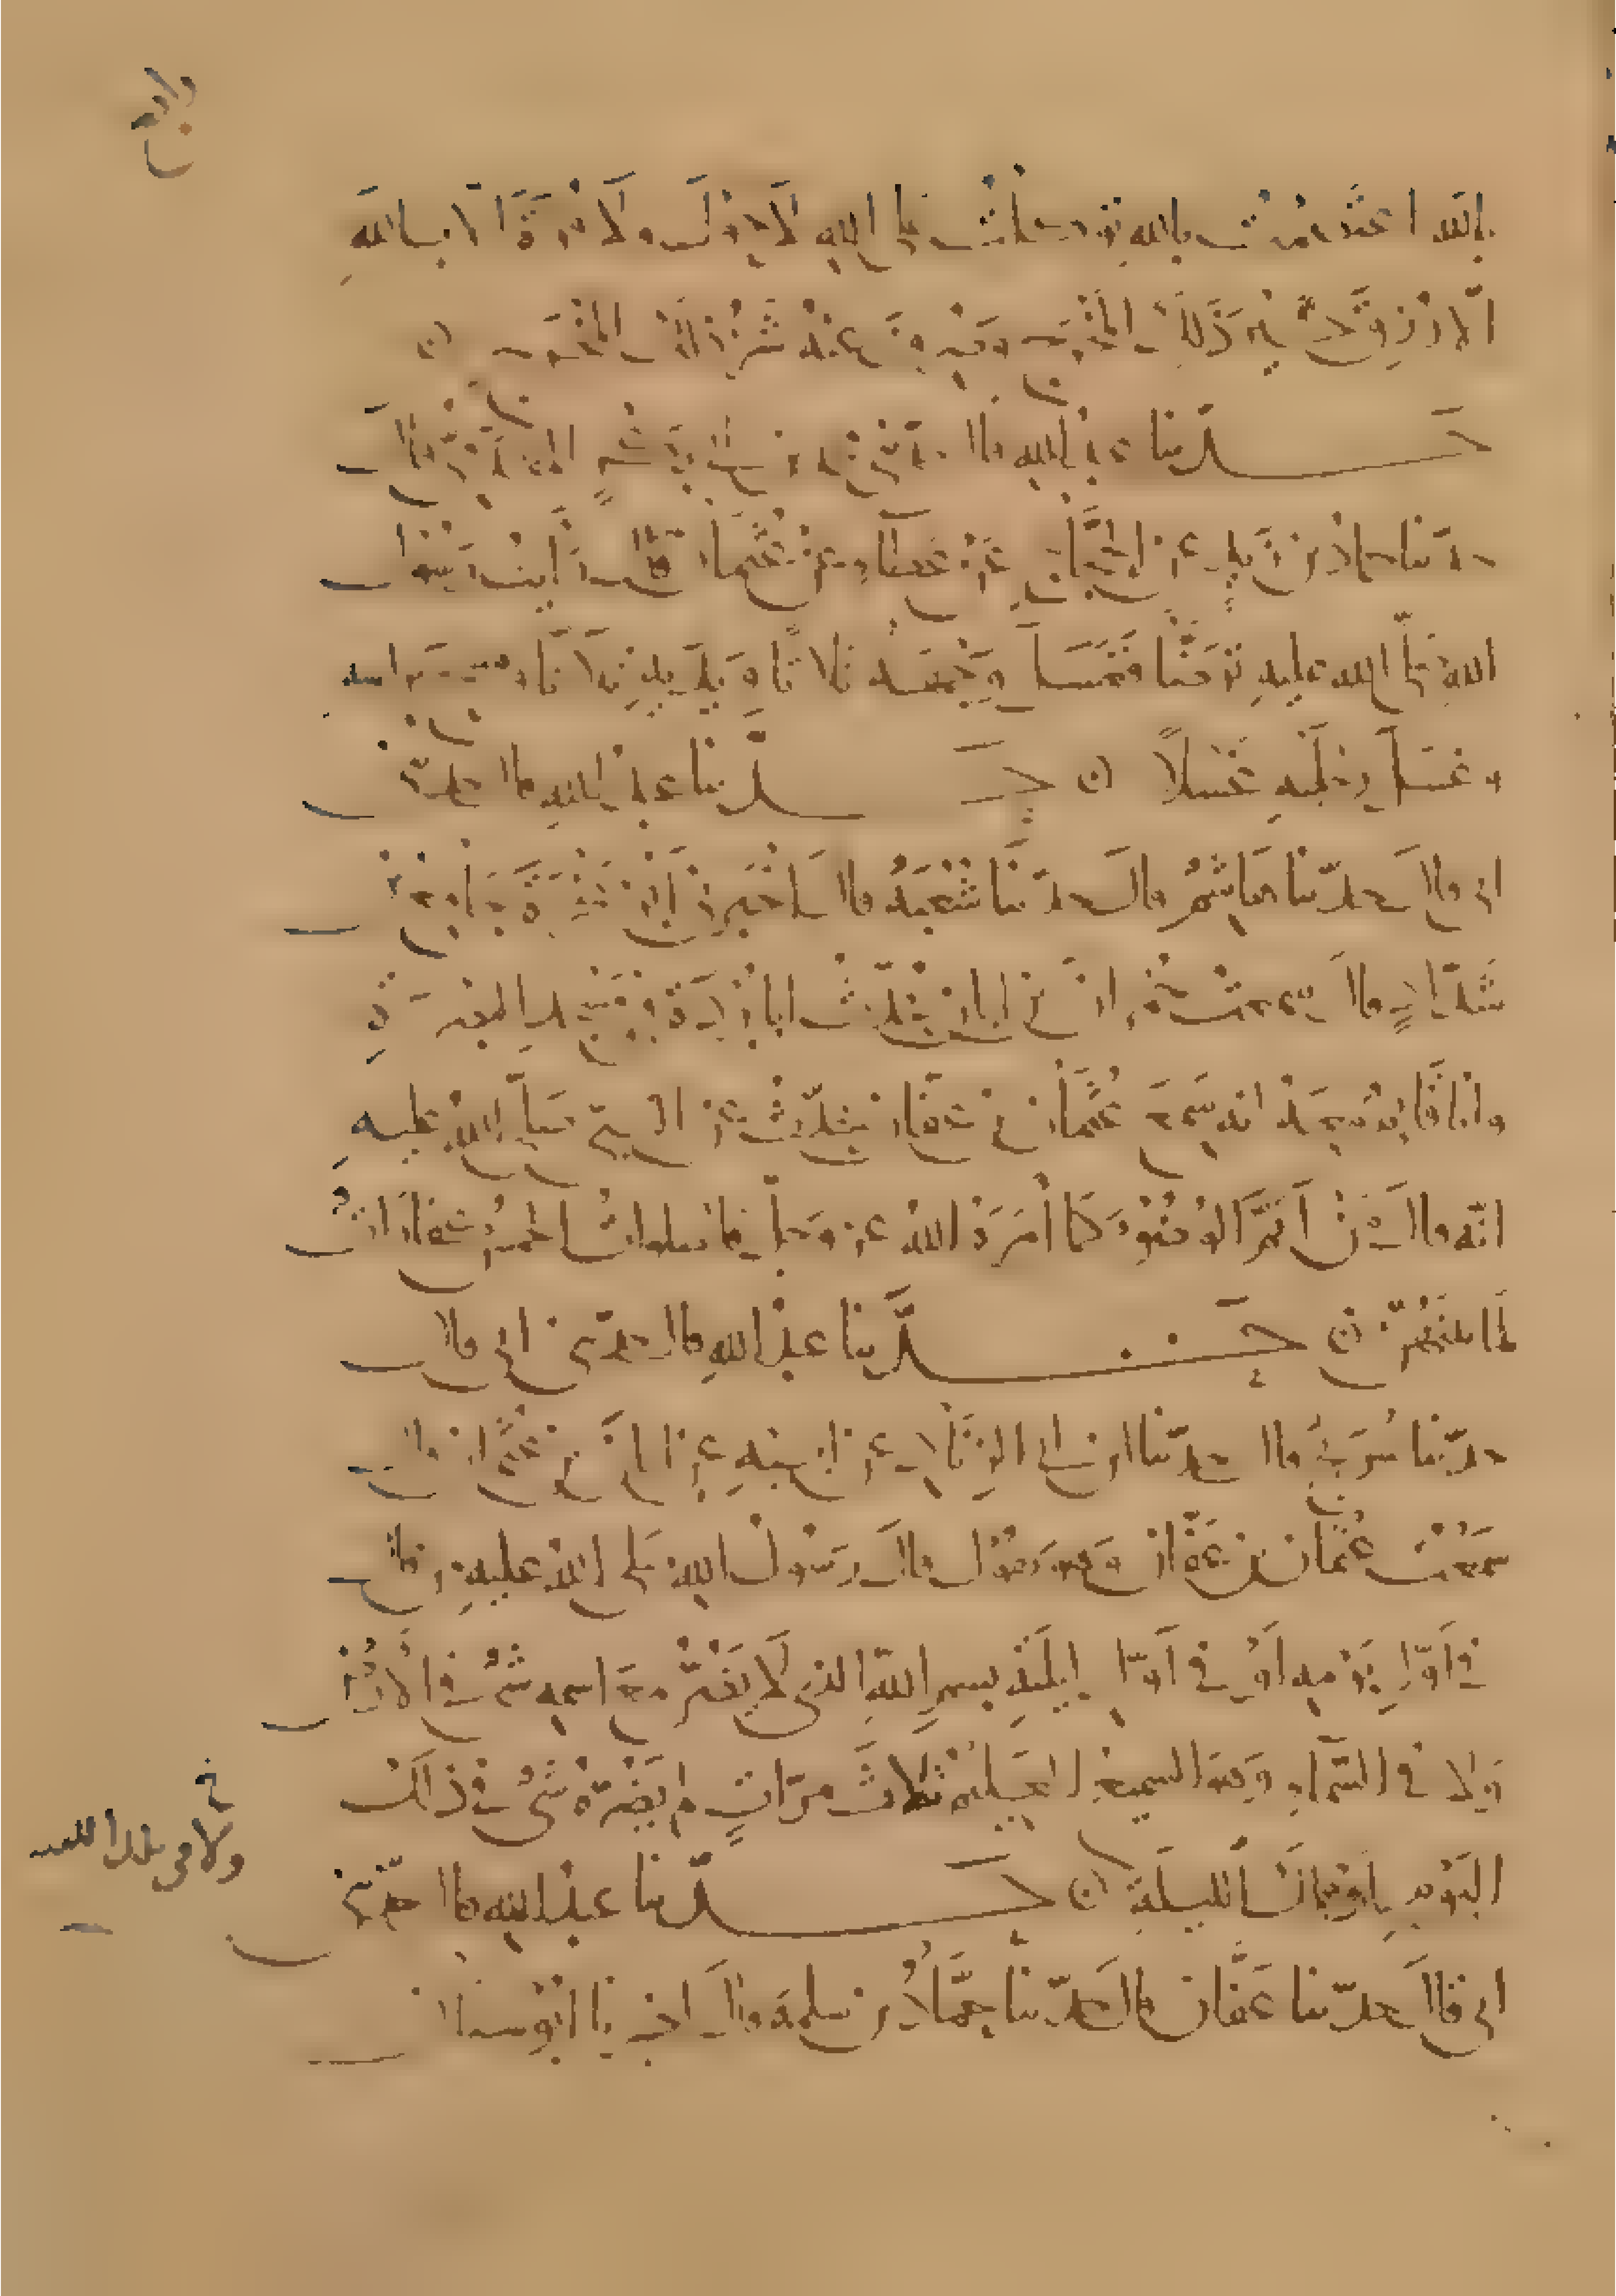 بالله اعتصمت بالله توكلت على الله لا حول ولا قوة الا بالله
الا رزق خير ذلك المخرج وصرف عنه شر ذلك المخرج
حدثنا عبد الله قال حدثني شيبان ابو محمد قال
حدثنا حماد بن زيد عن الحجاج عن عطاء عن عثمان قال رأيت رسول
الله صلى الله عليه توضأ فغسل وجهه ثلاثا ويديه ثلاثا ومسح براسه
وغسل رجليه غسلا حدثنا عبد الله قال حدثني
ابي قال حدثنا هاشم قال حدثنا شعبة قال اخبرني ابو صخرة جامع بن
شداد قال سمعت حمران بن ابان يحدث ابا بردة في مسجد البصرة
وانا قائم معه انه سمع عثمان بن عفان يحدث عن النبي صلى الله عليه
انه قال من اتم الوضوء كما امره الله عز وجل فالصلوات الخمس كفارات
لما بينهن حدثنا عبد الله قال حدثني ابي قال
حدثنا سريج قال حدثنا ابن ابي الزناد عن ابيه عن ابان بن عثمان قال
سمعت عثمان بن عفان وهو يقول قال رسول الله صلى الله عليه من قال
في اول يومه او في اول ليلته بسم الله الذي لا يضر مع اسمه شئ في الارض
ولا في السماء وهو السميع العليم ثلاث مرات لم يضره شئ في ذلك
اليوم او تلك الليلة حدثنا عبد الله قال حدثني
ولا في تلك الليلة
ابي قال حدثنا عفان قال حدثنا حماد بن سلمة قال اخبرنا ابو سنان